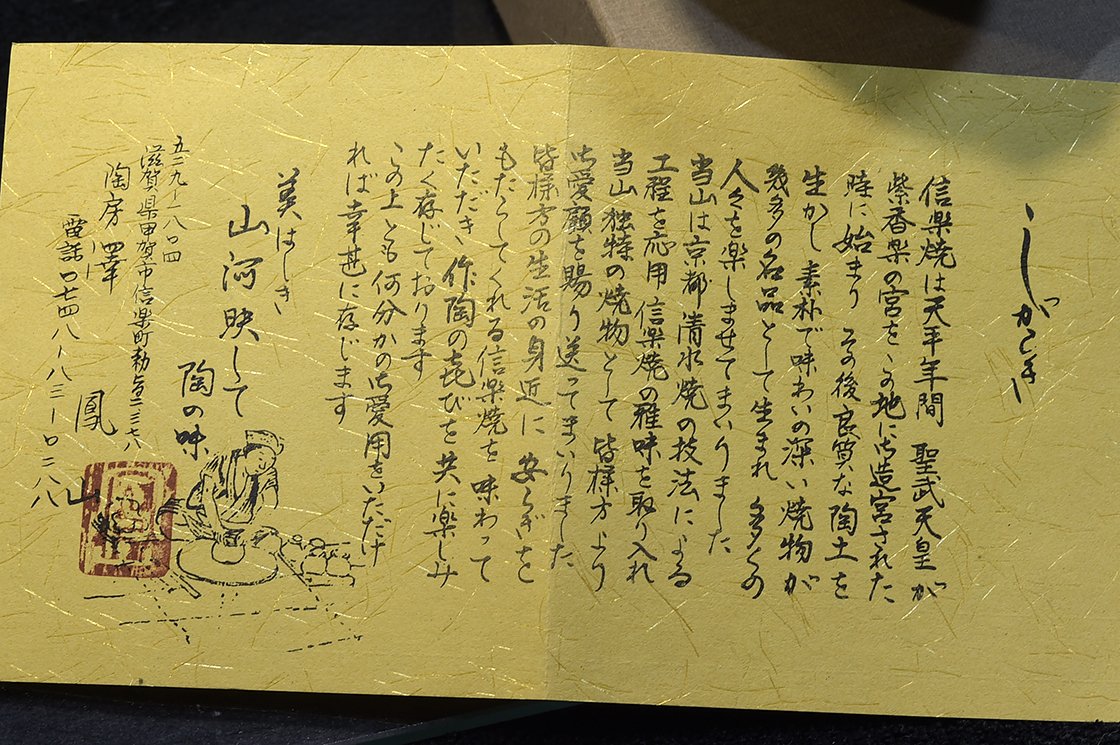 しがらき
信楽焼は天平年間 聖武天皇が
紫香楽の宮をこの地に御造宮された
時に始まり その後良質な陶土を
生かし 素朴で味わいの深い焼物が
幾多の名品として生まれ 多くの
人々を楽しませてまいりました
当山は京都 清水焼の技法による
工程を応用 信楽焼の雅味を取り入れ
当山 独特の焼物として 皆様方より
御愛顧を賜り送ってまいりました
皆様方の生活の身近に 安らぎを
もたらしてくれる信楽焼を 味わって
いただき、作陶の喜びを 共に楽しみ
たく存じております
この上とも何分かの御愛用をいただけ
れば幸甚に存じます
美はしき
山河映して
陶の味
五二九ー一八〇四
滋賀県甲賀市信楽町勅旨二三六八
陶房 澤 鳳山
電話〇七四八ー八三ー〇二八八